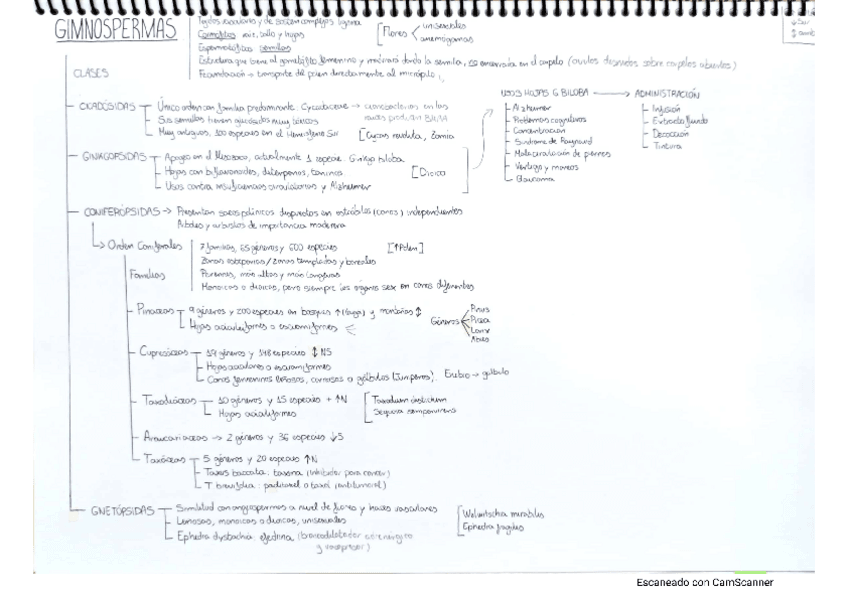 GIMNOSPERMAS
Tejidos vasculares y de sostén complejos lignina
Cormofitas raíz, tallo y hojas
Flores
unisexuales
anemógamas
Espermatofitas semillas
Estructura que tiene al gametofito femenino y madurará dando la semilla, es encerrada en el carpelo (óvulos desnudos sobre carpelos abiertos)
Fecundación → transporte del polen directamente al micrópilo
CLASES
USOS HOJAS G BILOBA → ADMINISTRACIÓN
Alzheimer
Problemas cognitivos
Concentración
Síndrome de Raynaud
Mala circulación de piernas
Vértigo y mareos
Glaucoma
Infusión
Extracto fluido
Decocción
Tintura
CICADÓSIDAS
Único orden con familia predominante Cycadaceae → cianobacterias en las raíces producen BMAA
Sus semillas tienen glucósidos muy tóxicos
Muy antiguos, 100 especies en el Hemisferio Sur
[Cycas revoluta, Zamia
GINKGOPSIDAS
Apogeo en el Mesozoico, actualmente 1 especie Ginkgo biloba
Hojas con biflavonoides, diterpenos, taninos
[Dioica
Usos contra insuficiencias circulatorias y Alzheimer
CONIFERÓPSIDAS → Presentan sacos polínicos dispuestos en estróbilos (conos) independientes
Árboles y arbustos de importancia maderera
Orden Coniferales
7 familias, 65 géneros y 600 especies
[↑Polen]
Zonas esteparias / zonas templadas y boreales
Perennes, más altos y más longevos
Monoicos o dioicos, pero siempre los órganos sex en conos diferentes
Familias
Pináceas
9 géneros y 200 especies en bosques ↑ y montañas ↕
Hojas aciculiformes o escuamiformes
Géneros
Pinus
Picea
Larix
Abies
Cupresáceas
19 géneros y 148 especies ↕ NS
Hojas aciculares o escuamiformes
Conos femeninos leñosos, carnosos o gálbulos (Juniperus). Enebro → gálbulo
Taxodiáceas
10 géneros y 15 especies + ↑N
Hojas aciculiformes
Taxodium distichum
Sequoia sempervirens
Araucariáceas → 2 géneros y 36 especies ↓S
Taxáceas
5 géneros y 20 especies ↑N
Taxus baccata: taxina (inhibidor para cáncer)
T brevifolia: paclitaxel o taxol (antitumoral)
GNETÓPSIDAS
Similitud con angiospermas a nivel de flores y haces vasculares
Leñosas, monoicas o dioicas, unisexuales
Ephedra dystachia: efedrina (broncodilatador
Welwitschia mirabilis
Ephedra fragilis
Escaneado con CamScanner